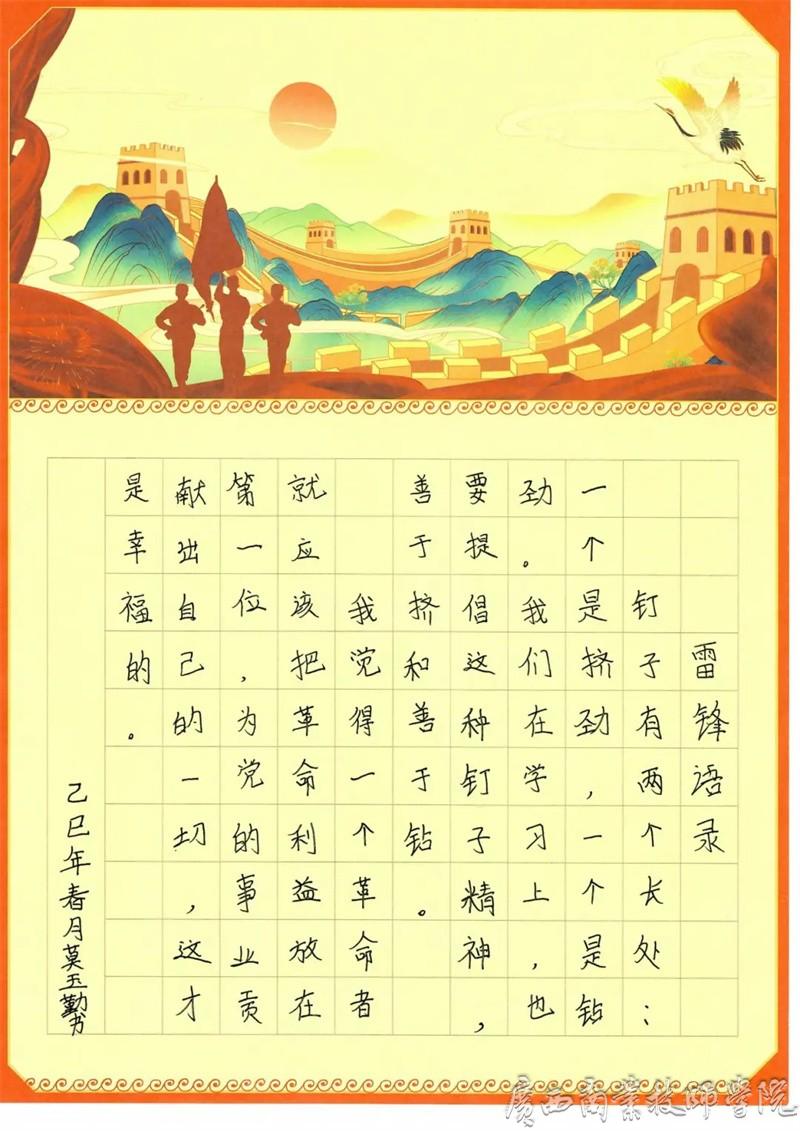 雷锋语录
钉子有两个长处：
一个是挤劲，一个是钻
劲。我们在学习上，也
要提倡这种钉子精神，
善于挤和善于钻。
我觉得一个革命者
就应该把革命利益放在
第一位，为党的事业贡
献出自己的一切，这才
是幸福的。
己巳年春月莫玉勤书
廣西商業技師學院